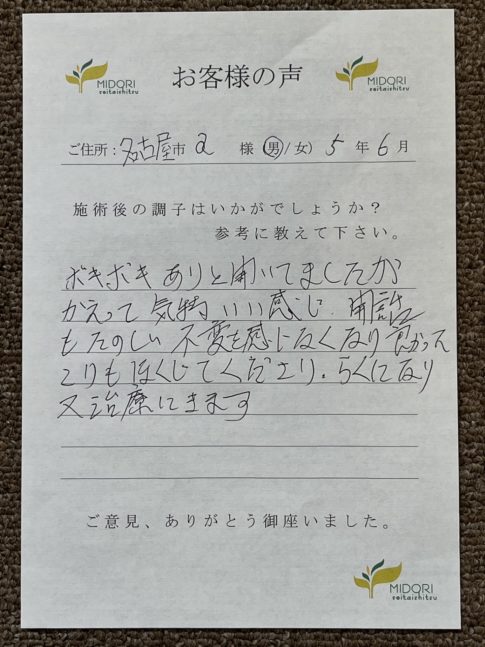 MIDORI
seitaishitsu
お客様の声
MIDORI
seitaishitsu
ご住所：名古屋市 a 様 (男/女) 5年6月
施術後の調子はいかがでしょうか？
参考に教えて下さい。
ボキボキありと聞いてましたが
かえって気持いい感じ、会話
もたのしい 不変を感じなくなり 肩かって
こりもほぐしてくださり、らくになり
又治療にきます
ご意見、ありがとう御座いました。
MIDORI
seitaishitsu